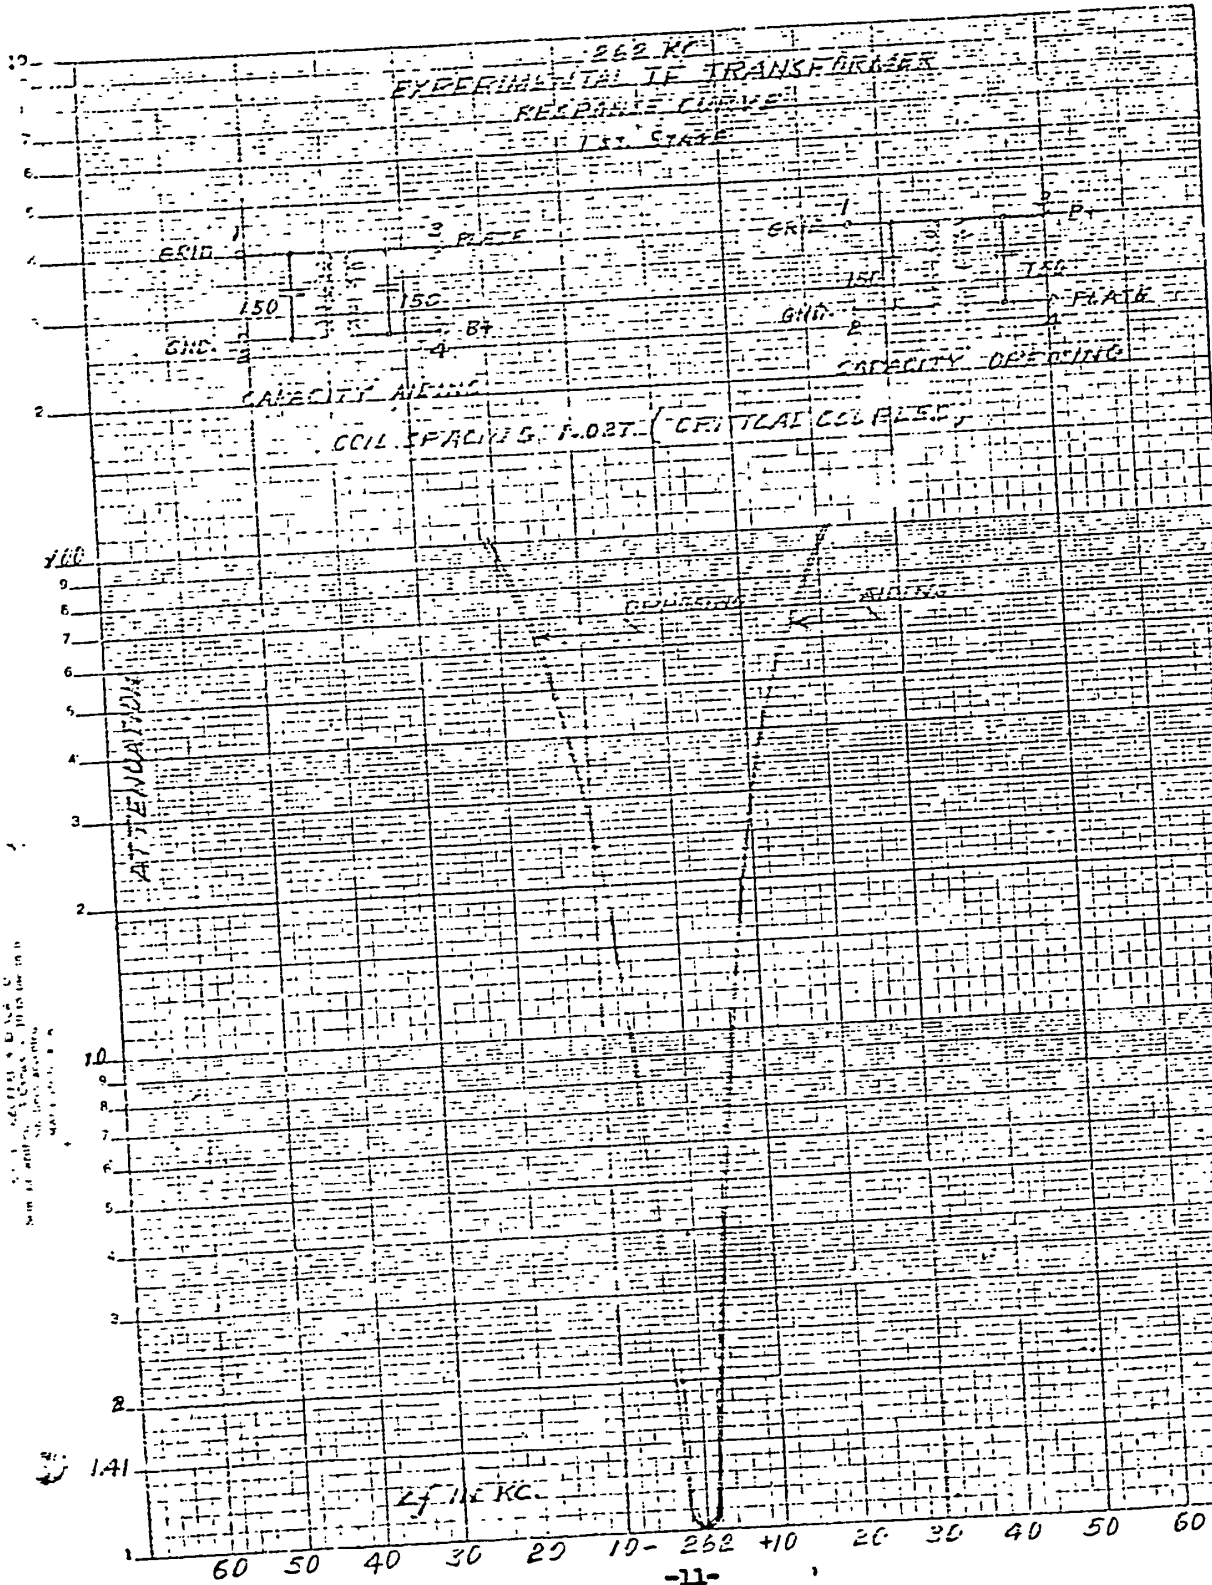 262 KC
EXPERIMENTAL IF TRANSFORMER
RESPONSE CURVE
1st STAGE
10
7
6
5
4
3
2
GRID 1
3 PLATE
150
150
GND. 2
4 B+
CAPACITY AIDING
GRID 1
3 B+
150
150
GND. 2
4 PLATE
CAPACITY OPPOSING
COIL SPACING
(CRITICAL COUPLED)
100
9
8
7
6
5
4
3
2
OPPOSING
AIDING
ATTENUATION
10
9
8
7
6
5
4
3
2
1.41
1
KC.
60 50 40 30 20 10- 262 +10 20 30 40 50 60
-11-